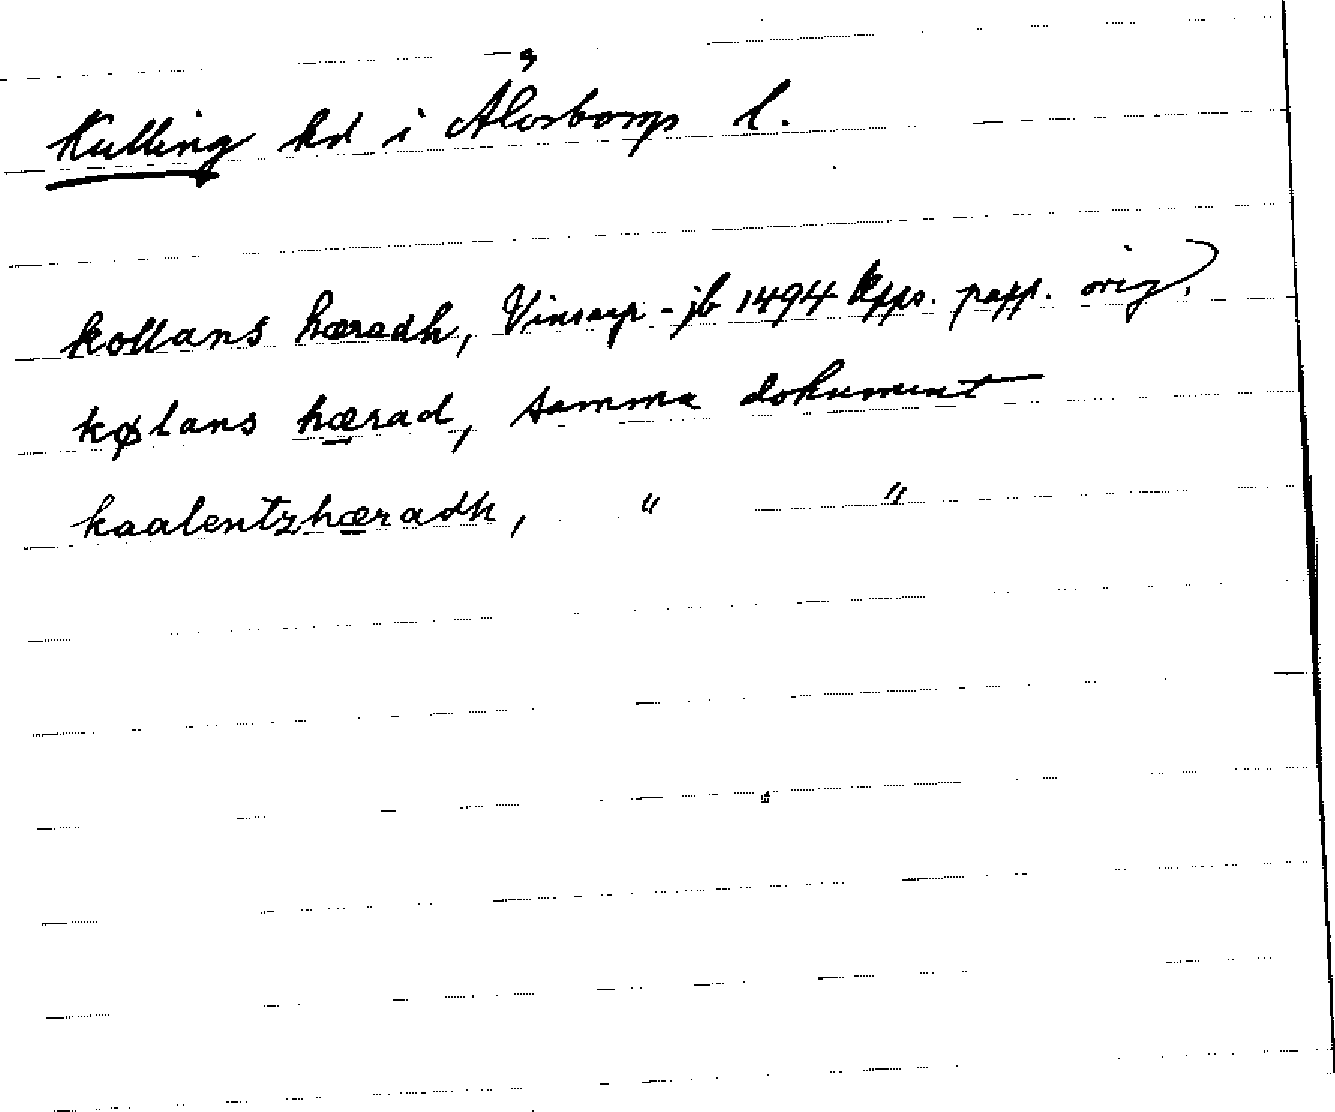 Kulling hd i Älvsborgs l.
kollans hæradh, Vinsarp-jb 1494 Kpps. papp. orig.
kølans hærad, samma dokument
kaalentzhæradh, " "